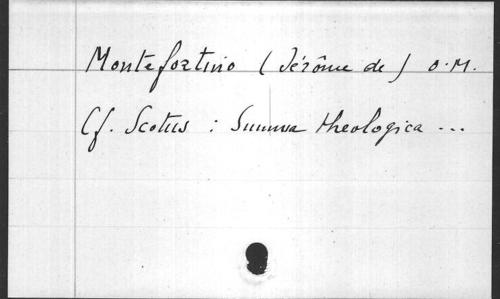 Montefortino (Jérôme de) O.M.
Cf. Scotus : Summa theologica ...